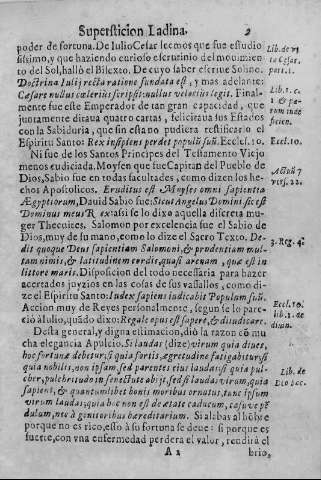 Supersticion Ladina. 2
poder de fortuna. De Iulio Cesar leemos que fue estudio
sissimo, y que haziendo curioso escrutinio del movimien
to del Sol, hallò el Bisexto. De cuyo saber escrive Solino.
Doctrina Iulij recta ratione fundata est, y mas adelante:
Cæsare nullus celerius scripsit: nullus velocius legit. Final-
mente fue este Emperador de tan gran capacidad, que
juntamente ditaua quatro cartas, felicitaua sus Estados
con la Sabiduria, que sin esta no pudiera testificarlo el
Espiritu Santo: Rex insipiens perdet populũ suũ. Eccles. 10.
Ni fue de los Santos Principes del Testamento Viejo
menos cudiciada. Moysen que fue Capitan del Pueblo de
Dios, Sabio fue en todas facultades, como dizen los he-
chos Apostolicos. Eruditus est Moyses omni sapientia
Ægyptiorum, Dauid Sabio fue: Sicut Angelus Domini sic est
Dominus meus Rex: assi se lo dixo aquella discreta mu-
ger Thecuites. Salomon por excelencia fue el Sabio de
Dios, muy de su mano, como lo dize el Sacro Texto. De-
dit quoque Deus sapientiam Salomoni, & prudentiam mul-
tam nimis, & latitudinem cordis, quasi arenam, quæ est in
littore maris. Disposicion del todo necessaria para hazer
acertados juyzios en las cosas de sus vassallos, como di-
ze el Espiritu Santo: Iudex sapiens iudicabit Populum suũ.
Accion muy de Reyes personalmente, segun se lo pare-
ciò a Iulio, quãdo dixo: Regale opus est sapere, & diiudicare.
Desta general, y digna estimacion, diò la razon cõ mu
cha elegancia Apulcio. Si laudas (dize) virum quia diues,
hoc fortunæ debetur: si quia fortis, ægretudine fatigabitur: si
quia nobilis, non ipsam, sed parentes eius laudas: si quia pul-
cher, pulchritudo in senectute abijt, sed si laudas virum, quia
sapiens, & quantum libet bonis moribus ornatus, tunc ipsum
virum laudas; quia hoc non est de ætate caducum,
dulum, nec à genitoribus hæreditarium. Si alabas al hõbre
porque no es rico, esto à su fortuna se deue: si porque es
fuerte, con vna enfermedad perderà el valor, rendirà el
A 2 brio,
Lib. de vi
ta Cæsar.
part. 1.
Lib. 1. c.
Eccl. 10.
Actuũ 7
vers. 22.
3. Reg. 4.
Eccl. 10.
lib. 1. de
Lib. de
Deo soc.